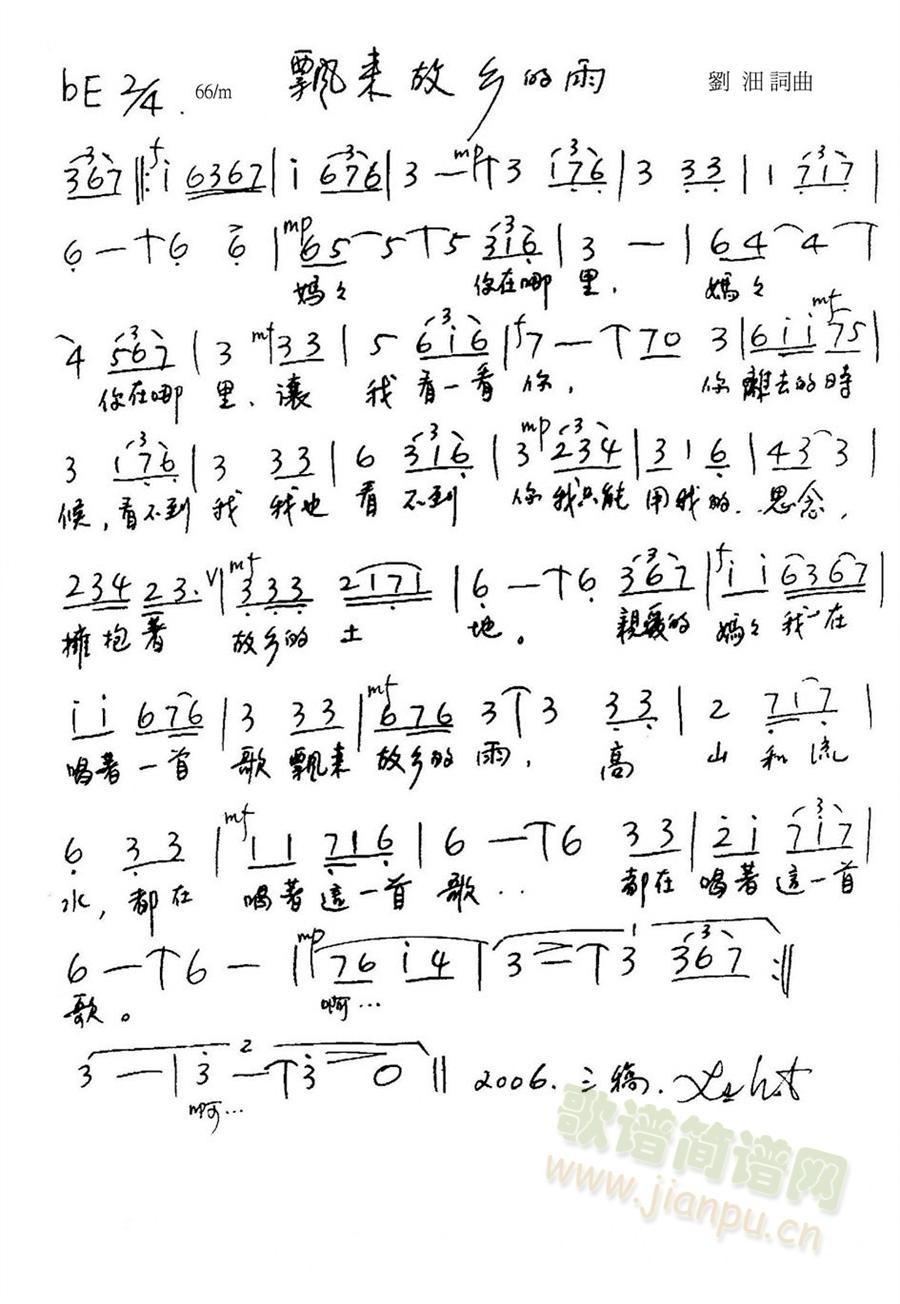 bE 2/4 66/m 飄来故乡的雨 劉沺詞曲
3 367 ‖: f i 6367 | i 3 676 | 3 — mp | 3 3 176 | 3 33 | 1 3 717 |
6 — | 6 6 | mp 65 5 | 5 3 316 | 3 — | 64 4 |
媽々 你在哪里, 媽々
4 3 567 | 3 mf 33 | 5 3 616 | f 7 — | 70 3 | 6ii mf 75 |
你在哪里、讓我看一看你, 你離去的時
3 3 176 | 3 33 | 6 3 316 | mp 3 3 234 | 3 1 6 | 43 3 |
候,看不到我我也看不到你我只能用我的思念,
234 23. V | mf 333 2171 | 6 — | 6 3 367 | f i i 6367 |
擁抱著故乡的土地。親爱的媽々我一在
i i 676 | 3 33 | mf 676 3 | 3 33 | 2 717 |
唱著一首歌飄来故乡的雨,高山和流
6 33 | mf 11 716 | 6 — | 6 33 | 2 i 3 717 |
水,都在唱著這一首歌.. 都在唱著這一首
6 — | 6 — ‖ mp 76 i 4 | 3 — | 1 3 3 367 :‖
歌。 啊…
3 — | 2 3 — | 3 0 ‖ 2006.三稿.
啊…
歌谱简谱网
www.jianpu.cn